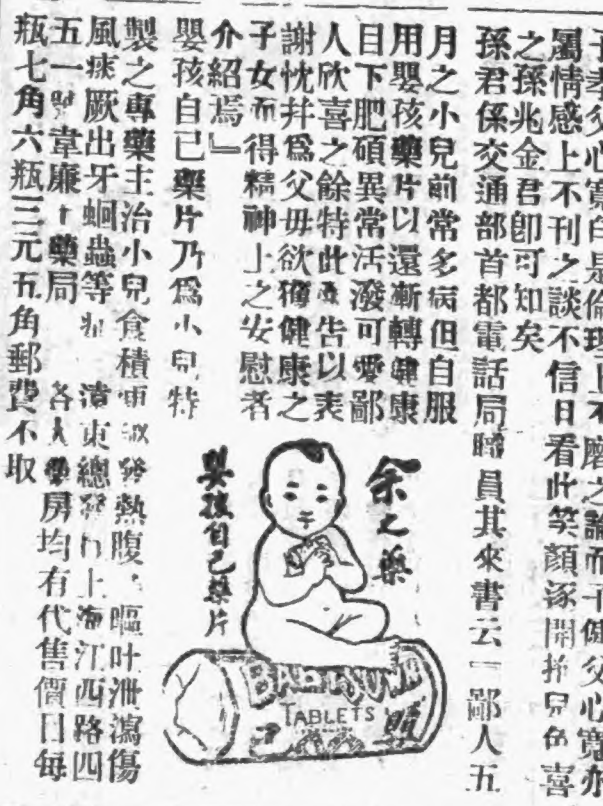 子孝父心寬自是倫理上不磨之論而子健父心寬亦
屬情感上不刊之談不信日看此笑顏逐開抱兒色喜
之孫兆金君卽可知矣
孫君係交通部首都電話局職員其來書云「鄙人五
月之小兒前常多病但自服
用嬰孩藥片以還漸轉健康
目下肥碩異常活潑可愛鄙
人欣喜之餘特此告以表
謝忱幷爲父毋欲獲健康之
子女而得精神上之安慰者
介紹焉』
嬰孩自己藥片乃爲小兒特
製之專藥主治小兒食積發熱腹嘔吐泄瀉傷
風痰厥出牙蛔蟲等東總發上海江西路四
五一號韋廉士藥局 各大藥房均有代售價目每
瓶七角六瓶三元五角郵費不取
余之藥
嬰孩自己藥片
BABY'S OWN
TABLETS